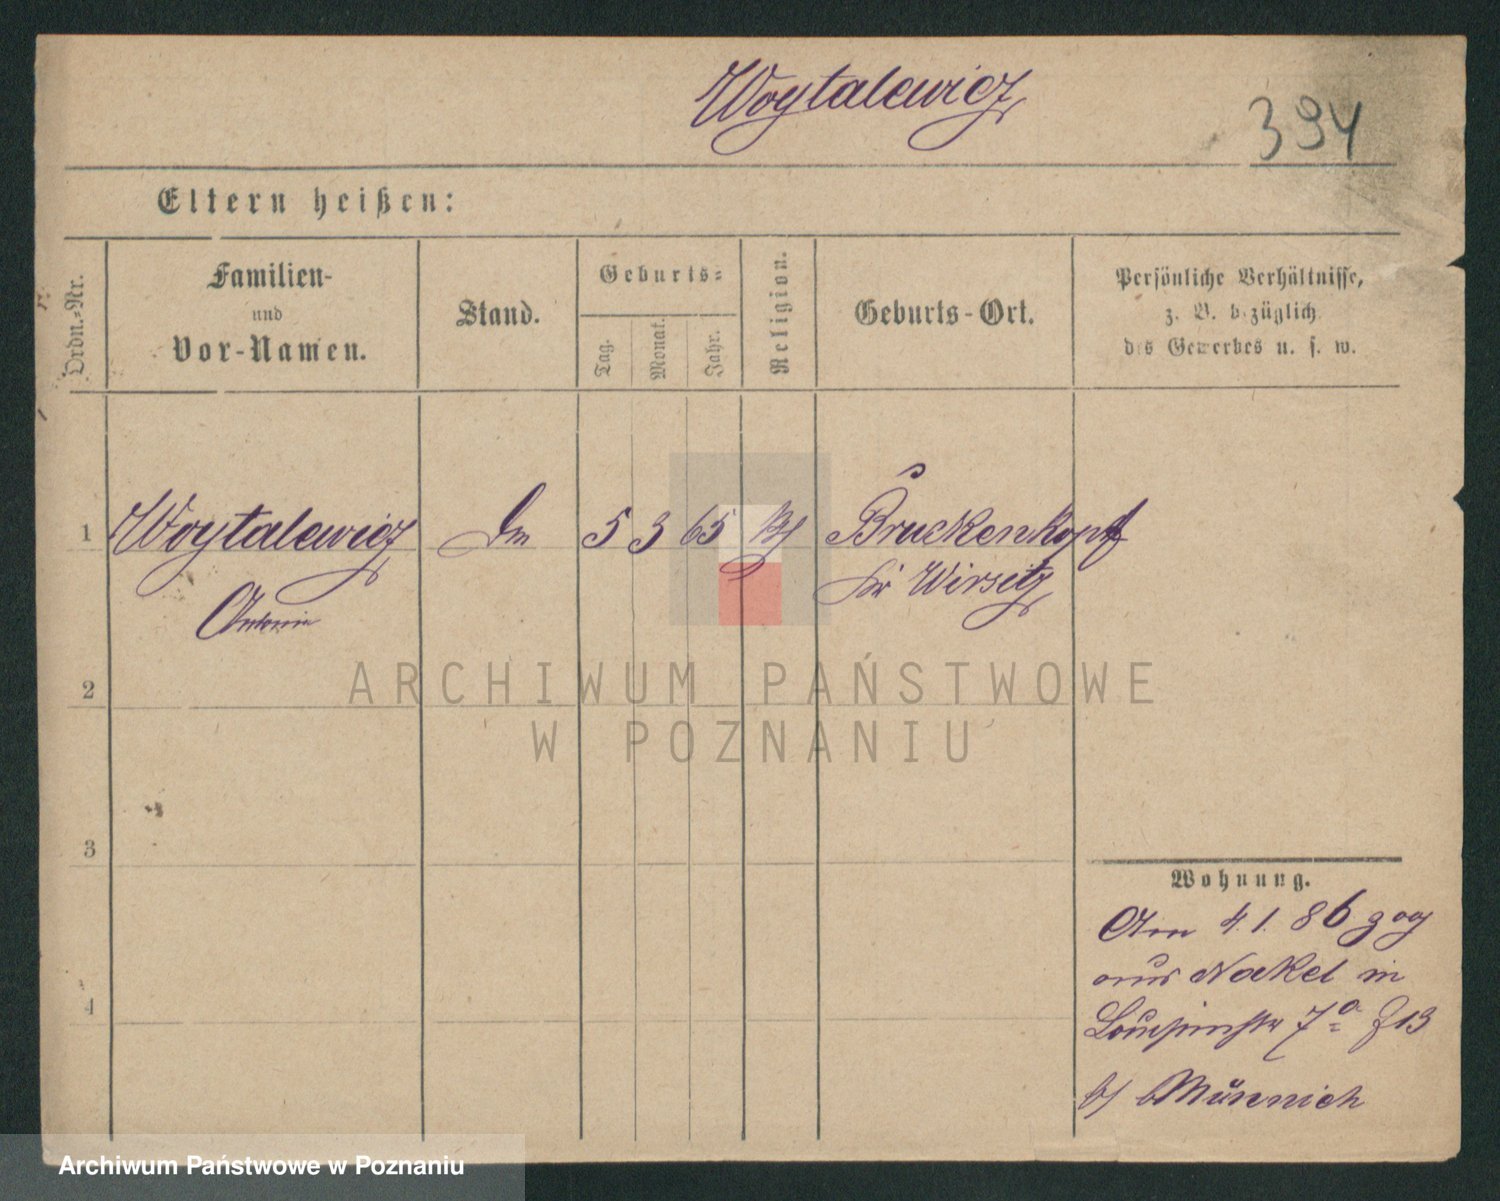 Woytalewicz
394
Eltern heißen:
Ordn.-Nr.
Familien-
und
Vor-Namen.
Stand.
Geburts-
Tag.
Monat.
Jahr.
Religion.
Geburts-Ort.
Persönliche Verhältnisse,
z. B. bezüglich
des Gewerbes u. s. w.
1 Woytalewicz 5 3 65 Bruckenkopf
Antonie Kr Wirsitz
2
3
4
Wohnung.
Am 4. 1. 86 zog
aus Nakel in
7a 13
b/ Münnich
ARCHIWUM PAŃSTWOWE
W POZNANIU
Archiwum Państwowe w Poznaniu